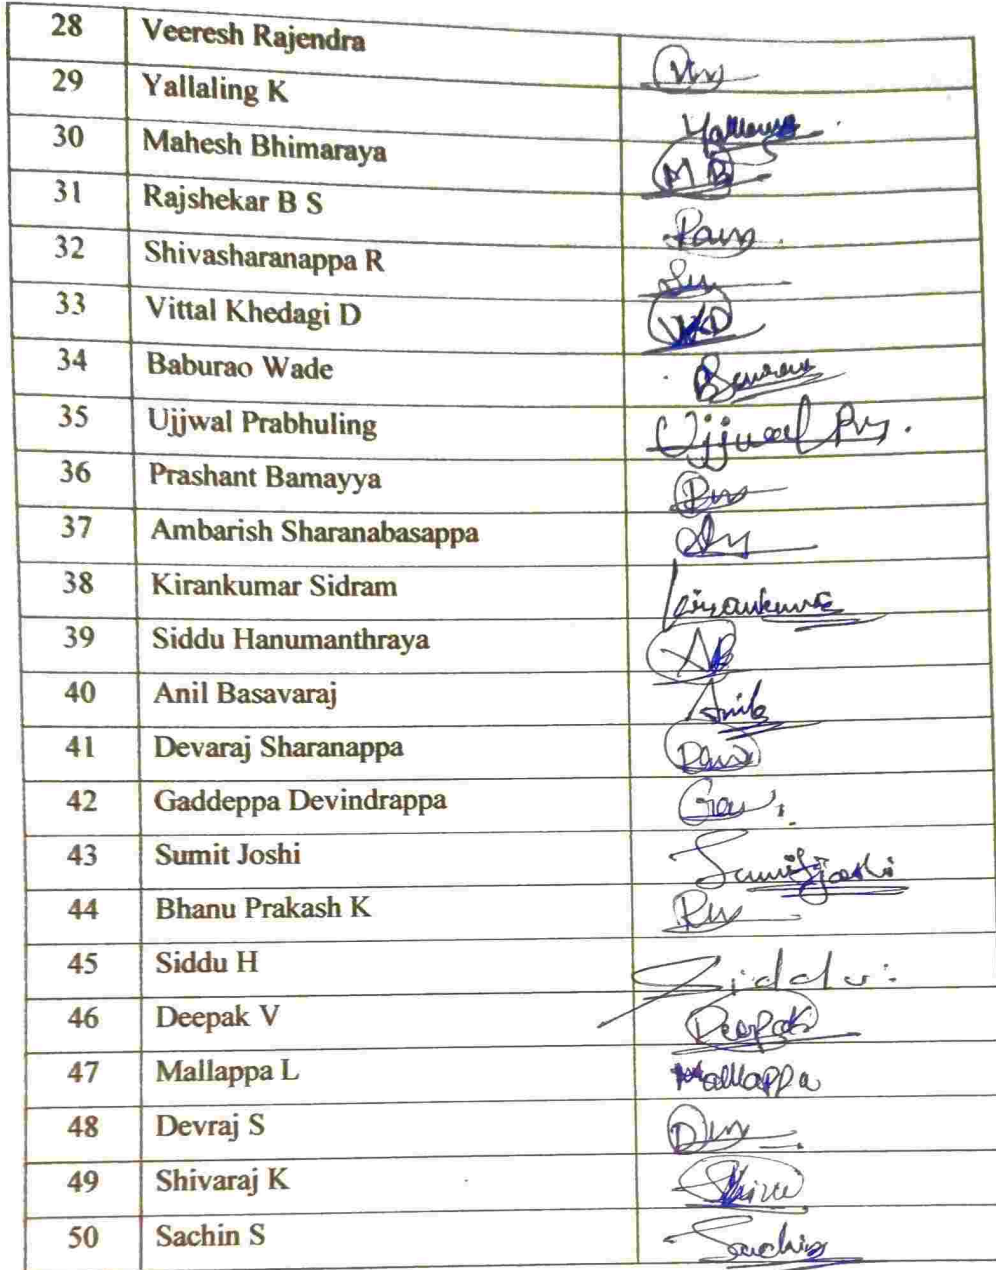 28 Veeresh Rajendra
29 Yallaling K
30 Mahesh Bhimaraya MB
31 Rajshekar B S
32 Shivasharanappa R
33 Vittal Khedagi D VKD
34 Baburao Wade
35 Ujjwal Prabhuling Ujjwal
36 Prashant Bamayya
37 Ambarish Sharanabasappa
38 Kirankumar Sidram Kirankumar
39 Siddu Hanumanthraya
40 Anil Basavaraj Anil
41 Devaraj Sharanappa
42 Gaddeppa Devindrappa
43 Sumit Joshi Sumit Joshi
44 Bhanu Prakash K
45 Siddu H Siddu
46 Deepak V Deepak
47 Mallappa L Mallappa
48 Devraj S
49 Shivaraj K
50 Sachin S Sachin